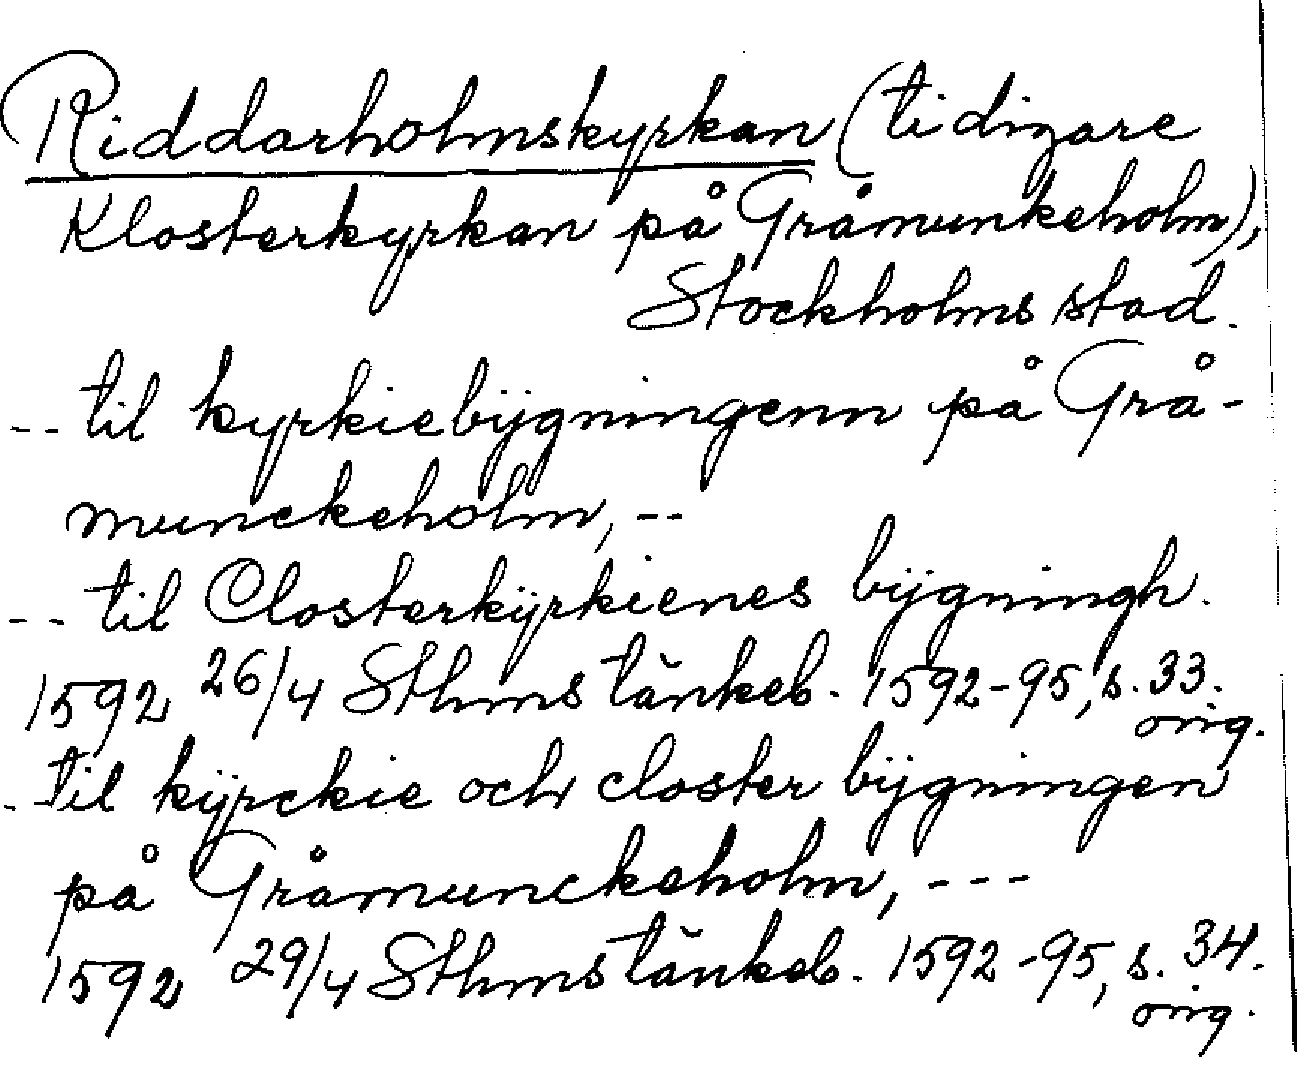 Riddarholmskyrkan (tidigare
Klosterkyrkan på Gråmunkeholm),
Stockholms stad.
-- til kyrkiebÿgningenn på Grå-
munckeholm, --
-- til Closterkÿrkienes bÿgningh.
1592 26/4 Sthms tänkeb. 1592-95, s. 33.
orig.
- til kÿrckie och closter bÿgningen
på Gråmunckeholm, ---
1592 29/4 Sthms tänkeb. 1592-95, s. 34.
orig.